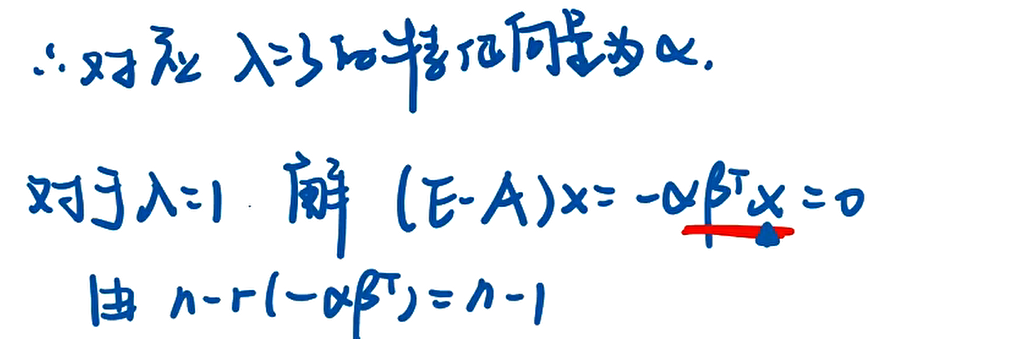 ∴对应 λ=3的特征向量为α.
对于λ=1 解 (E-A)x=-αβᵀx=0
由 n-r(-αβᵀ)=n-1